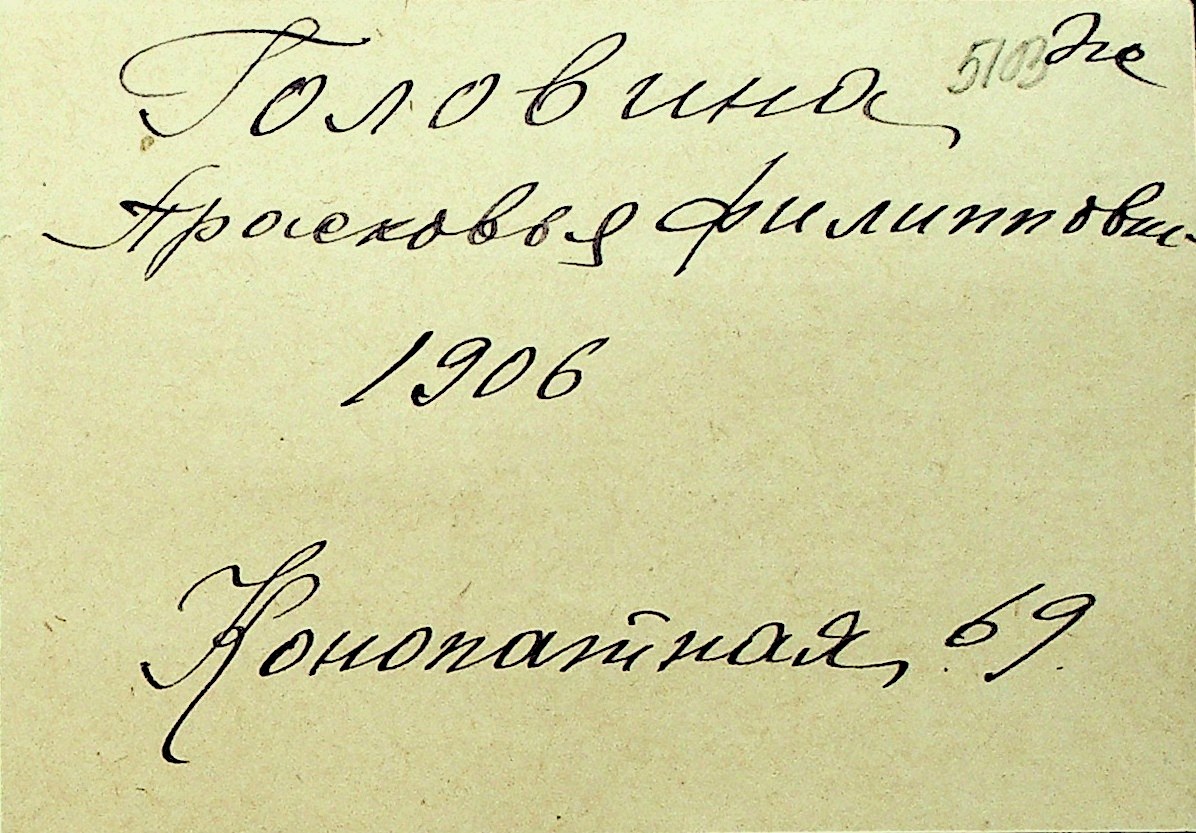 Головина 5103 же
Прасковья Филипповн
1906
Конопатная, 69.